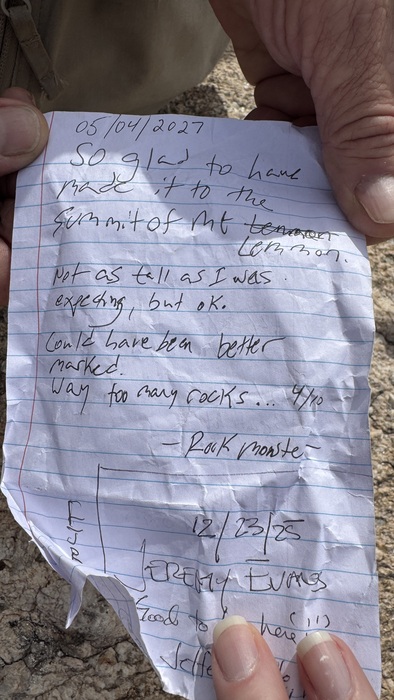 05/04/2027
So glad to have
made it to the
summit of Mt Lemmon
Lemmon.
Not as tall as I was
expecting, but ok.
Could have been better
marked.
Way too many rocks... 4/10
- Rock monster -
12/23/25
JEREMY Evans
Good to here (!!)